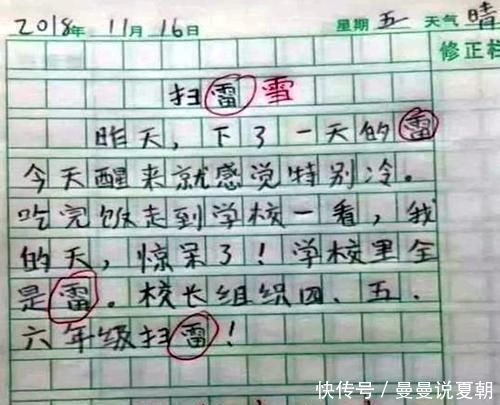 2018年 11月 16日 星期 五 天气 晴
修正栏
扫雷 雪
昨天，下了一天的雷
今天醒来就感觉特别冷。
吃完饭走到学校一看，我
的天，惊呆了！学校里全
是雷。校长组织四、五、
六年级扫雷！
快传号／曼曼说夏朝